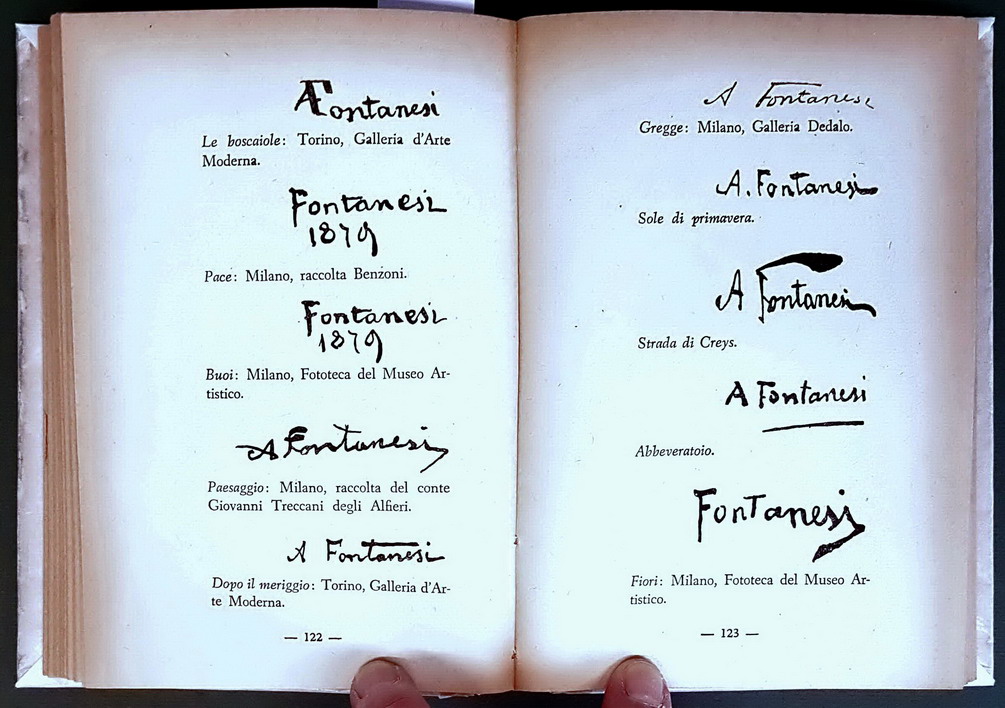 AFontanesi
Le boscaiole: Torino, Galleria d'Arte
Moderna.
Fontanesi
1879
Pace: Milano, raccolta Benzoni.
Fontanesi
1879
Buoi: Milano, Fototeca del Museo Ar-
tistico.
A Fontanesi
Paesaggio: Milano, raccolta del conte
Giovanni Treccani degli Alfieri.
A Fontanesi
Dopo il meriggio: Torino, Galleria d'Ar-
te Moderna.
— 122 —
A Fontanesi
Gregge: Milano, Galleria Dedalo.
A. Fontanesi
Sole di primavera.
A Fontanesi
Strada di Creys.
A Fontanesi
Abbeveratoio.
Fontanesi
Fiori: Milano, Fototeca del Museo Ar-
tistico.
— 123 —